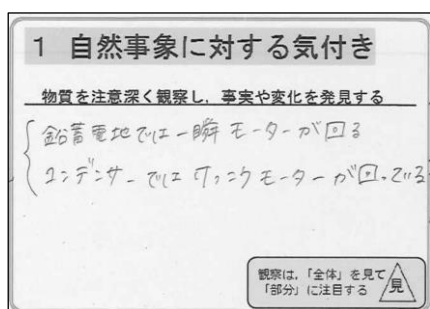 1 自然事象に対する気付き
物質を注意深く観察し，事実や変化を発見する
鉛蓄電地では一瞬モーターが回る
コンデンサーでは けっこうモーターが回っている
観察は，「全体」を見て
「部分」に注目する
見